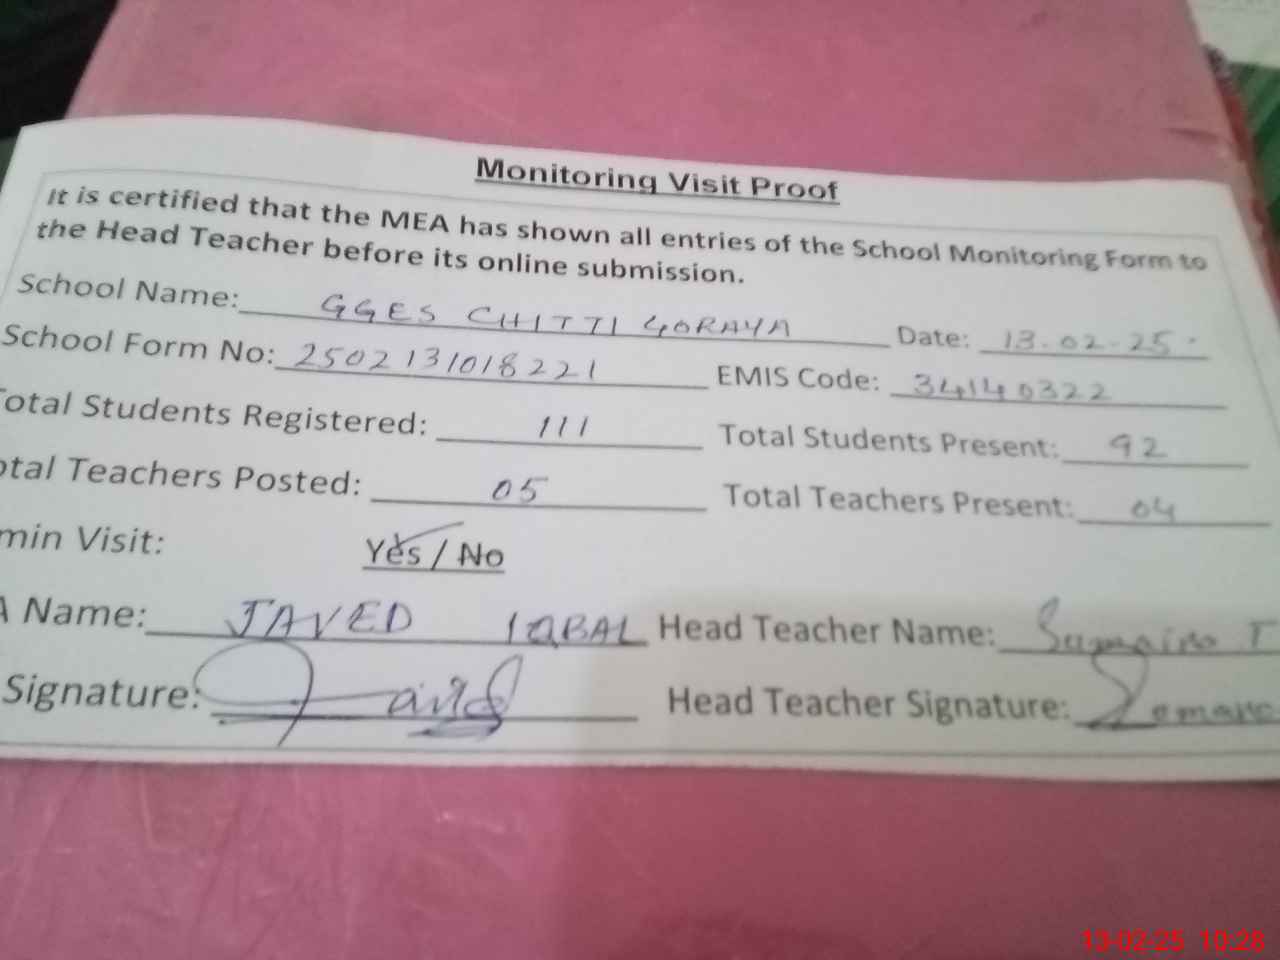 Monitoring Visit Proof
It is certified that the MEA has shown all entries of the School Monitoring Form to
the Head Teacher before its online submission.
School Name: GGES CHITTI GORAYA Date: 13.02.25
School Form No: 2502131018221 EMIS Code: 34140322
Total Students Registered: 111 Total Students Present: 92
otal Teachers Posted: 05 Total Teachers Present: 04
min Visit: Yes / No
A Name: JAVED IQBAL Head Teacher Name:
Signature: Javed Head Teacher Signature:
13-02-25 10:28